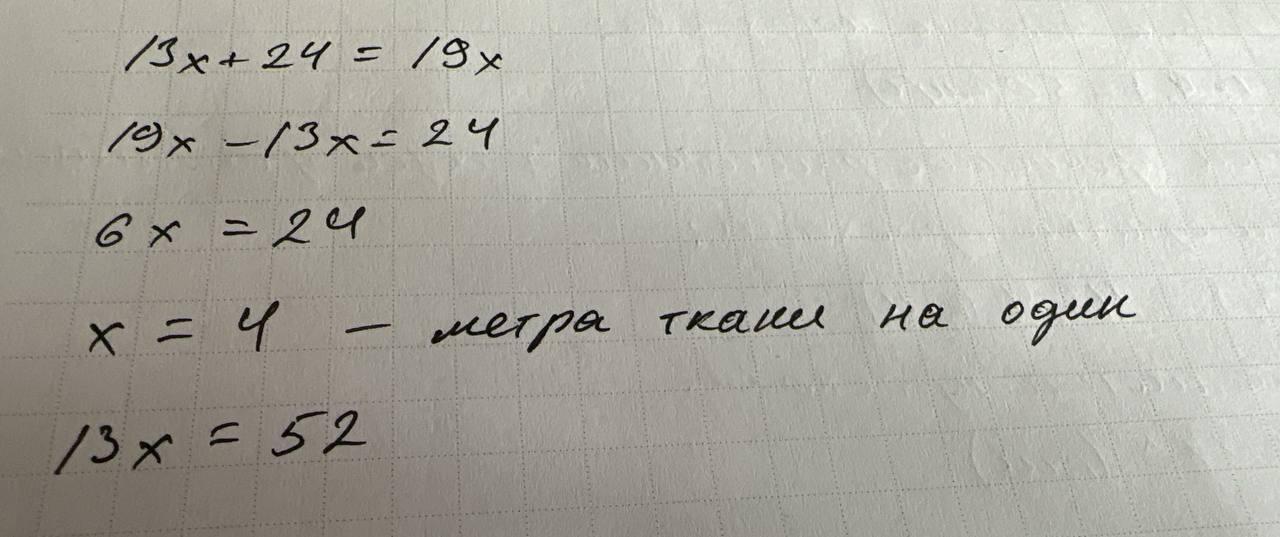 13x + 24 = 19x
19x - 13x = 24
6x = 24
x = 4 — метра ткани на один
13x = 52